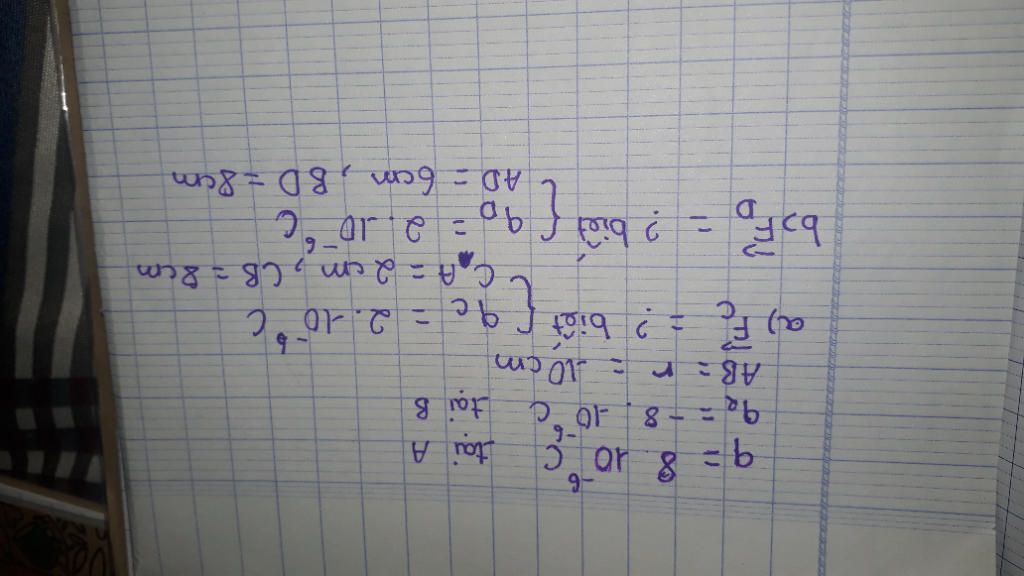 q = 8 . 10⁻⁶ C tại A
q₂ = -8 . 10⁻⁶ C tại B
AB = r = 10 cm
a) F⃗c = ? biết { qc = 2 . 10⁻⁶ C
CA = 2cm, CB = 8cm
b) F⃗D = ? biết { qD = 2 . 10⁻⁶ C
AD = 6cm, BD = 8cm